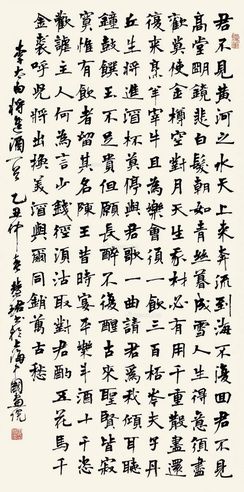 君不見黃河之水天上來奔流到海不復回君不見
高堂明鏡悲白髮朝如青絲暮成雪人生得意須盡
歡莫使金樽空對月天生我材必有用千金散盡還
復來烹羊宰牛且為樂會須一飲三百杯岑夫子丹
丘生將進酒杯莫停與君歌一曲請君為我傾耳聽
鐘鼓饌玉不足貴但願長醉不復醒古來聖賢皆寂
寞惟有飲者留其名陳王昔時宴平樂斗酒十千恣
歡謔主人何為言少錢徑須沽取對君酌五花馬千
金裘呼兒將出換美酒與爾同銷萬古愁
李太白將進酒一首 乙丑仲 於上海中國畫院